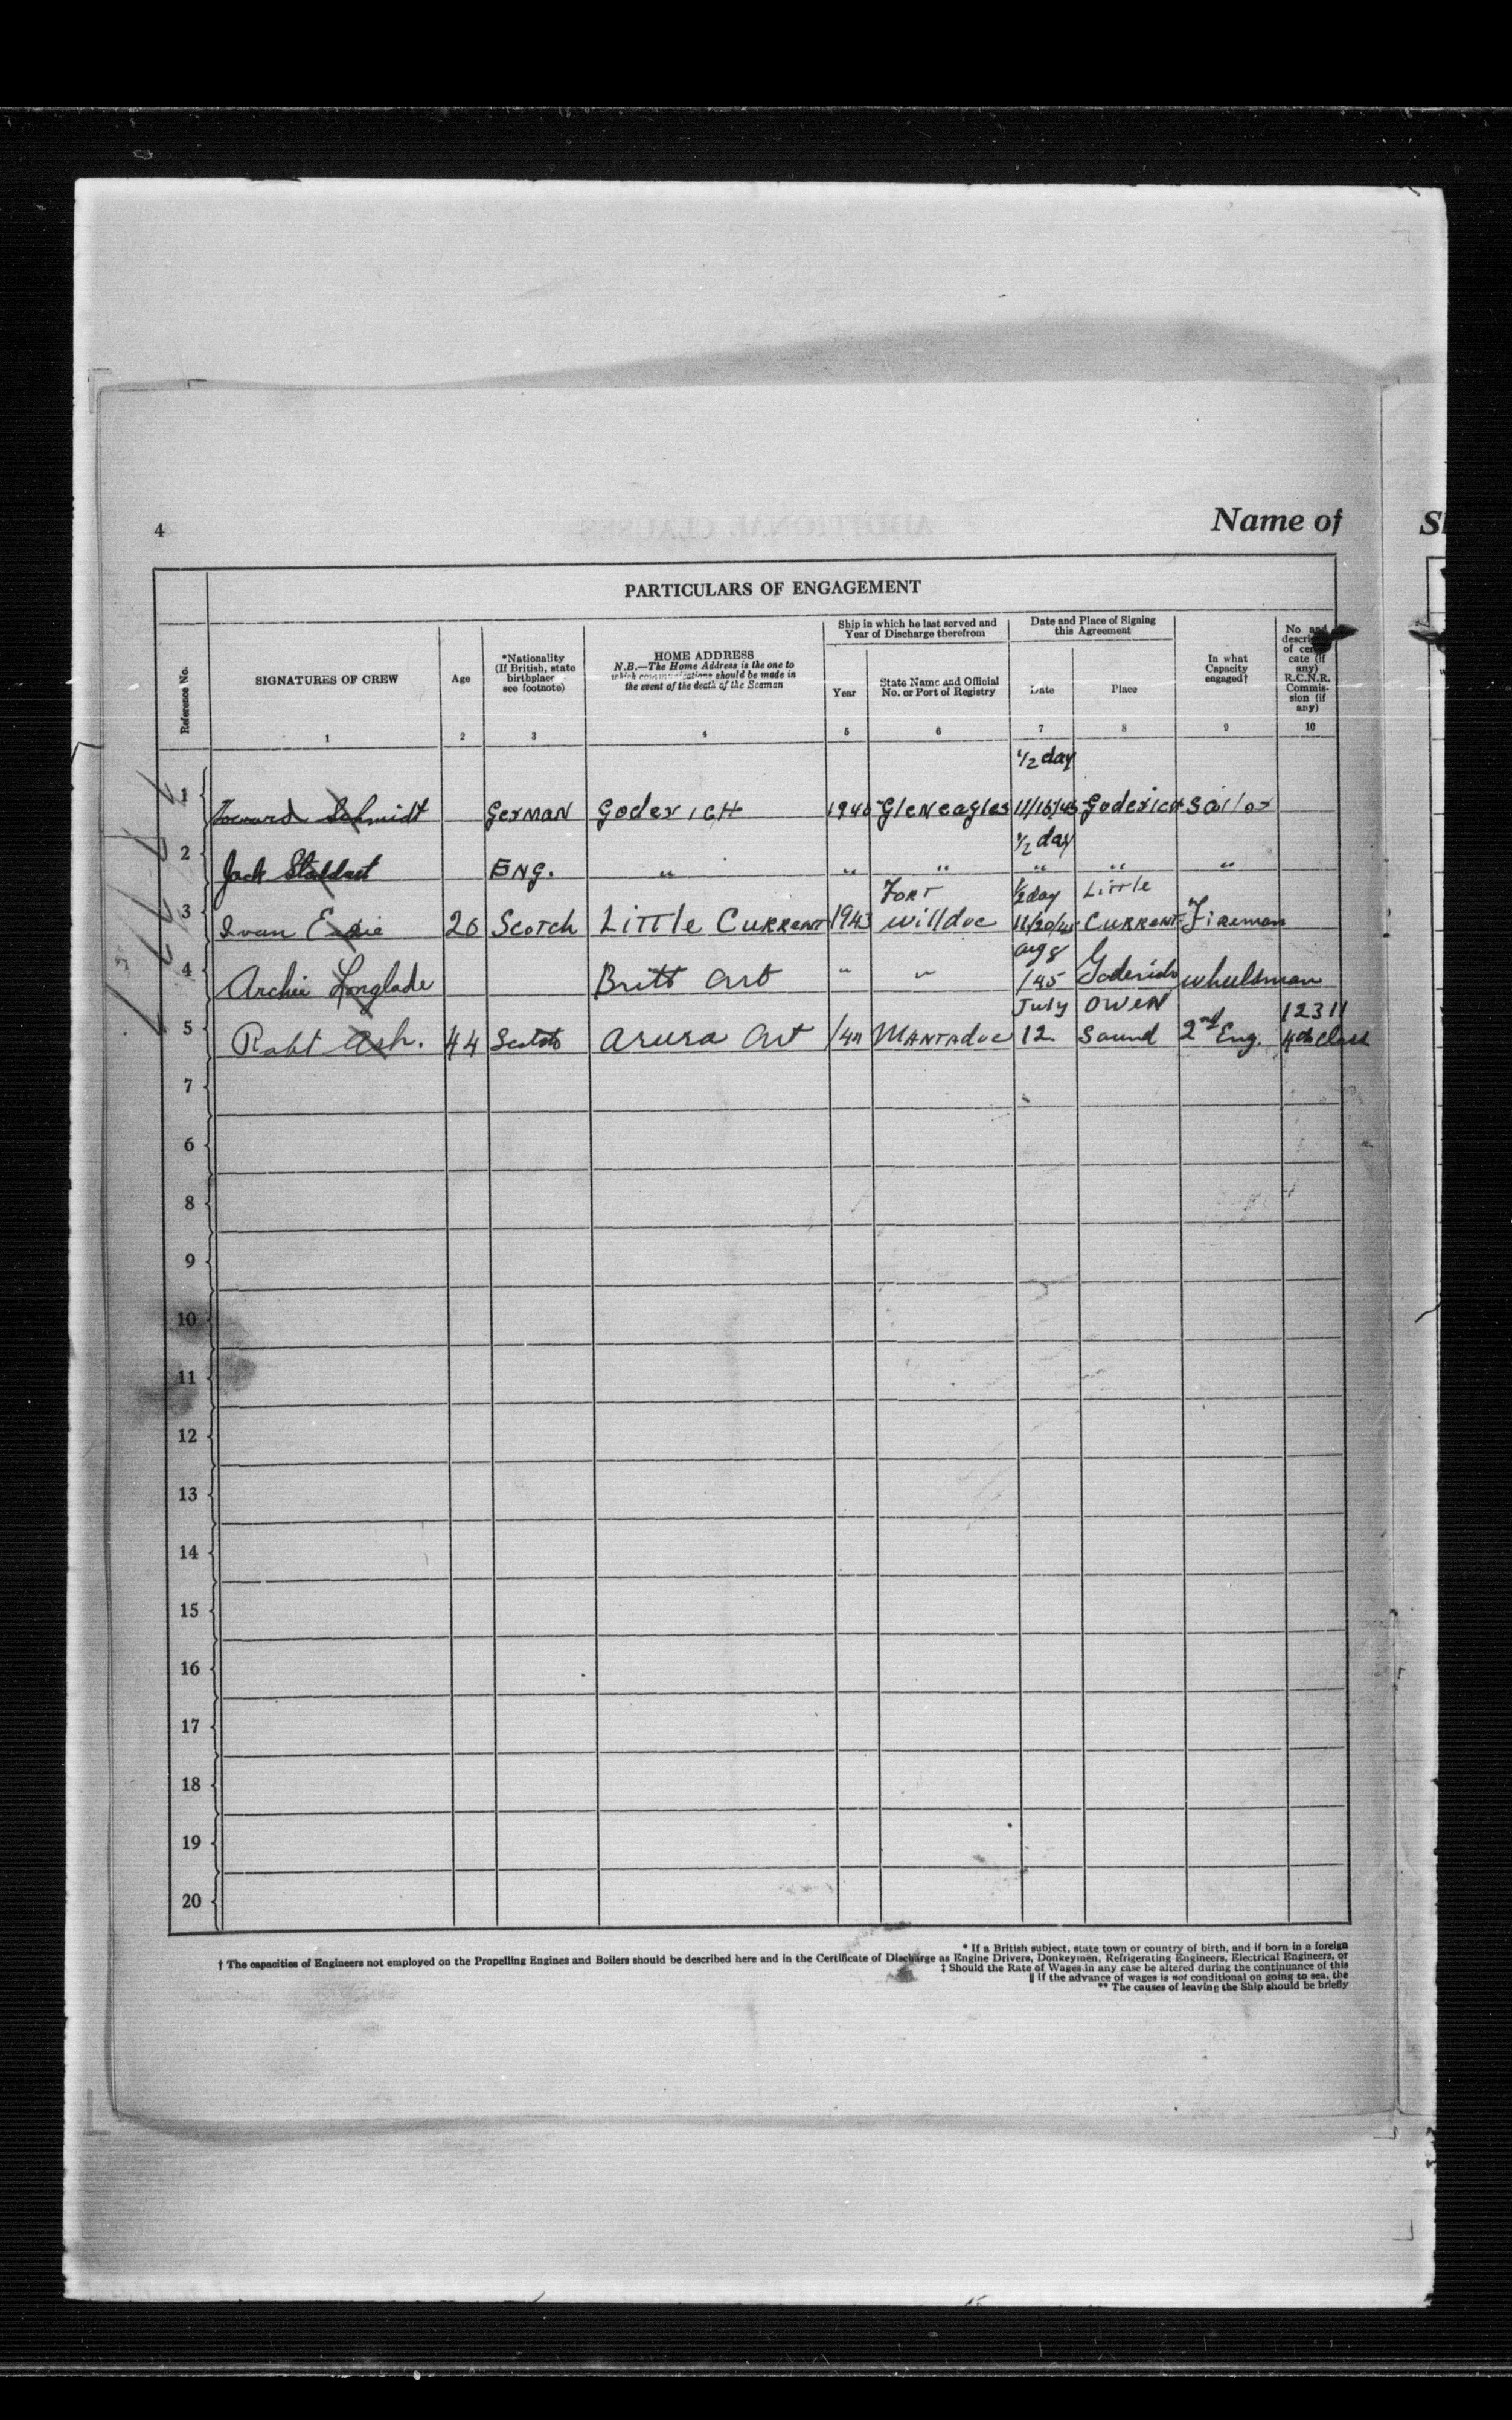 4
Name of
PARTICULARS OF ENGAGEMENT
Reference No.
SIGNATURES OF CREW
1
Age
2
*Nationality
(If British, state
birthplace
see footnote)
3
HOME ADDRESS
N.B.—The Home Address is the one to
which communications should be made in
the event of the death of the Seaman
4
Ship in which he last served and
Year of Discharge therefrom
Year
5
State Name and Official
No. or Port of Registry
6
Date and Place of Signing
this Agreement
Date
7
Place
8
In what
Capacity
engaged†
9
No and
cate (if
any)
R.C.N.R.
Commis-
sion (if
any)
10
1/2 day
1 Schmidt German Goderich 1940 Gleneagles Goderich Sailor
1/2 day
2 Jack ENG. " " " " " "
Fort 1/2 day Little
3 Ivan 20 Scotch Little Current 1943 Willdoc Current Fireman
Aug 8
4 Archie Longlade Britt Ont " " /45 Goderich wheelsman
July Owen 12311
5 Robt Ash. 44 Ont Mantadoc 12 Sound 2nd Eng. 4th Class
7
6
8
9
10
11
12
13
14
15
16
17
18
19
20
* If a British subject, state town or country of birth, and if born in a foreign
† The capacities of Engineers not employed on the Propelling Engines and Boilers should be described here and in the Certificate of Discharge as Engine Drivers, Donkeymen, Refrigerating Engineers, Electrical Engineers, or
‡ Should the Rate of Wages in any case be altered during the continuance of this
|| If the advance of wages is not conditional on going to sea, the
** The causes of leaving the Ship should be briefly